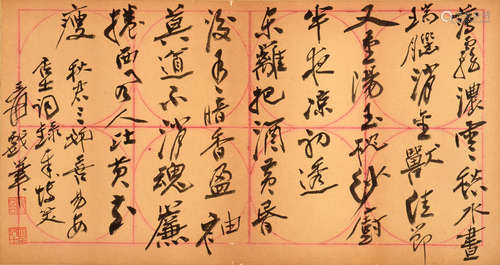 薄霧濃雲愁永晝
瑞腦消金獸佳節
又重陽玉枕紗廚
半夜涼初透
東籬把酒黃昏
後有暗香盈袖
莫道不消魂簾
捲西風人比黃花
瘦 秋寒三姊喜易安
居士詞錄奉
爰戲筆